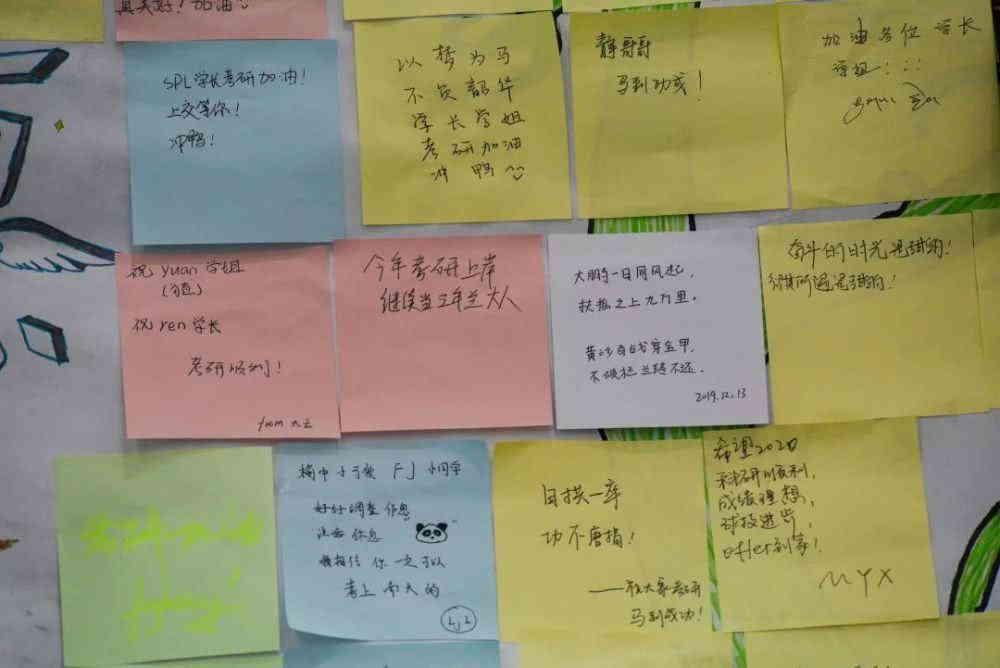 真美好!加油~
SPL学长考研加油!
上交等你!
冲鸭!
以梦为马
不负韶华
学长学姐
考研加油
冲鸭
静哥哥
马到功成!
加油各位学长
学姐:::
祝 yuan 学姐
祝 ren 学长
考研顺利!
from 大云
今年考研上岸
继续当三年兰大人
大鹏一日同风起,
扶摇之上九万里。
黄沙百战穿金甲,
不破楼兰终不还。
2019.12.13
奋斗的时光是甜的!
榆中 FJ 小同学
好好调整作息
注意休息
我相信你一定可以
考上南大的
LJL
日拱一卒
功不唐捐!
——祝大家考研
马到成功!
希望2020
科研顺利,
成绩理想,
球技进步,
offer到家!
MYX